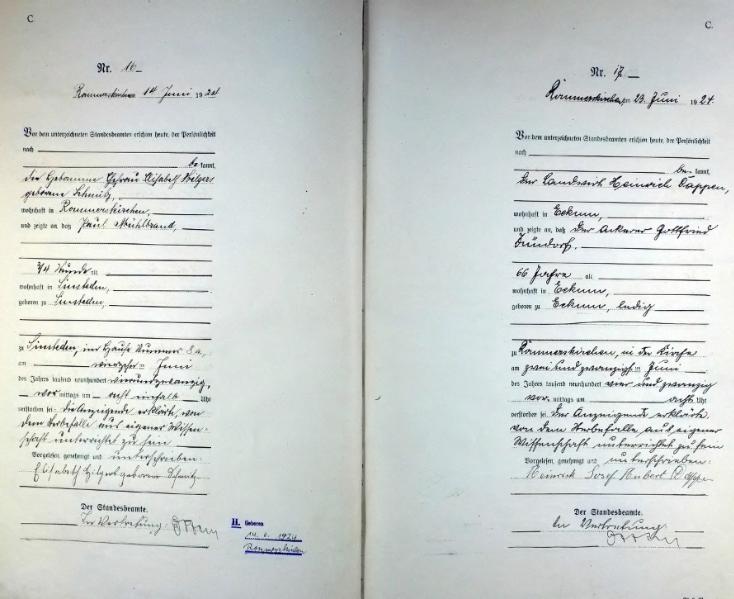 C
Nr. 16
Rommerskirchen 14 Juni 1924
Vor dem unterzeichneten Standesbeamten erschien heute, der Persönlichkeit
nach
be kannt,
der Hebamme Ehefrau Elisabeth Hilgers
geborene Schmitz,
wohnhaft in Rommerskirchen,
und zeigte an, daß Paul Mühlbrand,
3/4 Stunde alt
wohnhaft in Sinsteden,
geboren zu Sinsteden,
zu Sinsteden, im Hause Nummer 8a,
am Juni
des Jahres tausend neunhundert vierundzwanzig,
vor mittags um acht einhalb Uhr
verstorben sei. die Anzeigende erklärte, von
dem Sterbefalle aus eigener Wissen-
schaft unterrichtet zu sein
Vorgelesen, genehmigt und unterschrieben:
Elisabeth Hilgers geborene Schmitz
Der Standesbeamte.
In Vertretung
H. Geboren
1924
Rommerskirchen
C.
Nr. 17
Rommerskirchen, am 23. Juni 1924.
Vor dem unterzeichneten Standesbeamten erschien heute, der Persönlichkeit
nach
be kannt,
der Landwirt Heinrich Cappen,
wohnhaft in Eckum,
und zeigte an, daß der Ackerer Gottfried
Zündorf.
66 Jahre alt
wohnhaft in Eckum,
geboren zu Eckum, ledig
zu Rommerskirchen, in der Kirche
am zwei und zwanzigsten Juni
des Jahres tausend neunhundert vier und zwanzig
vor mittags um acht Uhr
verstorben sei. Der Anzeigende erklärte
von dem Sterbefalle aus eigener
Wissenschaft unterrichtet zu sein
Vorgelesen, genehmigt und unterschrieben:
Heinrich Josef Hubert
Der Standesbeamte.
In Vertretung